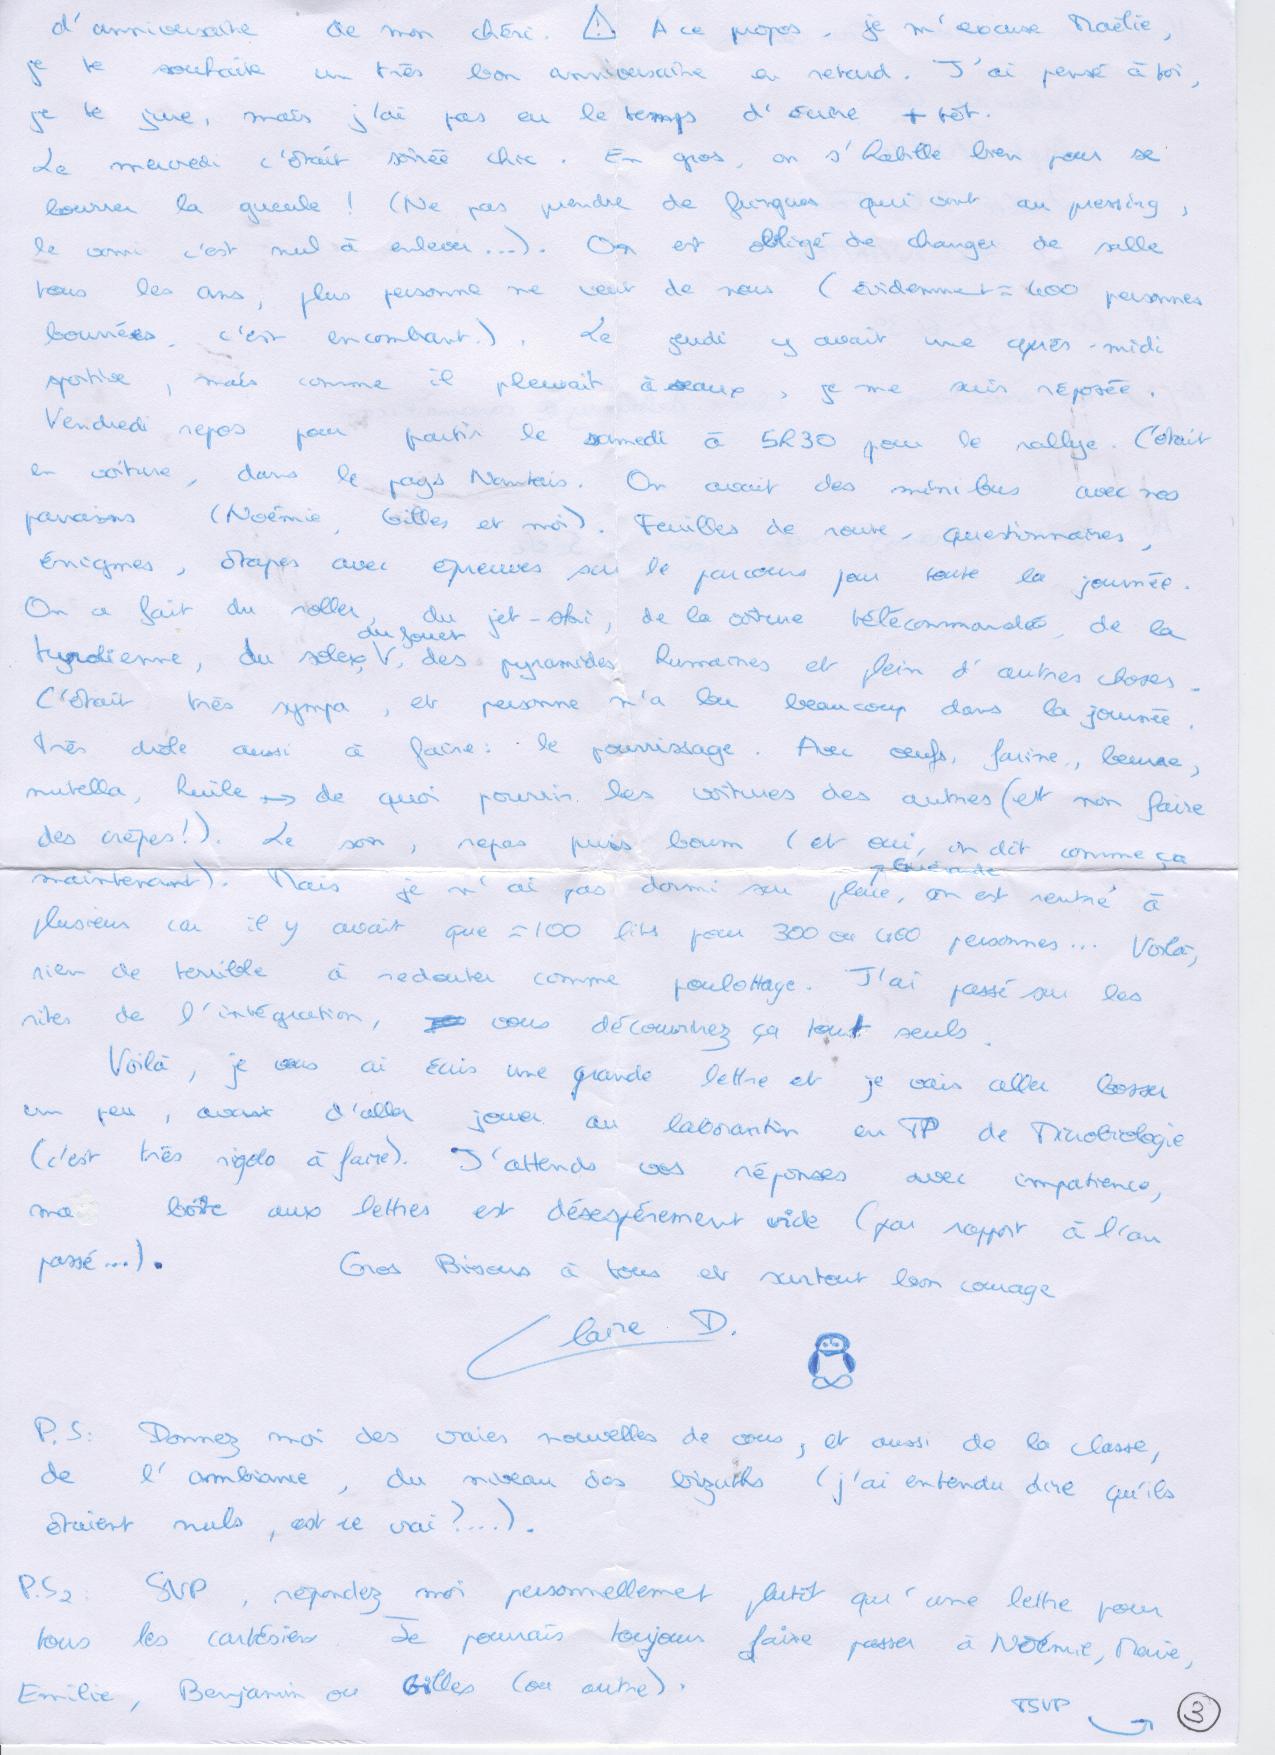 d'anniversaire de mon chéri. ⚠ A ce propos, je m'excuse Maëlie,
je te souhaite un très bon anniversaire en retard. J'ai pensé à toi,
je te jure, mais j'ai pas eu le temps d'écrire + tôt.
Le mercredi c'était soirée chic. En gros, on s'habille bien pour se
bourrer la gueule ! (Ne pas prendre de fringues qui vont au pressing,
le vomi c'est nul à enlever...). On est obligé de changer de salle
tous les ans, plus personne ne veut de nous (évidemment ≈ 400 personnes
bourrées, c'est encombrant.). Le jeudi y avait une après-midi
sportive, mais comme il pleuvait à seaux, je me suis reposée.
Vendredi repos pour partir le samedi à 5h30 pour le rallye. C'était
en voiture, dans le pays Nantais. On avait des minibus avec nos
parrains (Noémie, Gilles et moi). Feuilles de route, questionnaires,
énigmes, étapes avec épreuves sur le parcours pour toute la journée.
On a fait du roller, du jet-ski, de la voiture télécommandée, de la
du fouet
tyrolienne, du solex, V, des pyramides humaines et plein d'autres choses.
C'était très sympa, et personne n'a bu beaucoup dans la journée.
Très drôle aussi à faire : le pourrissage. Avec oeufs, farine, beurre,
nutella, huile → de quoi pourrir les voitures des autres (et non faire
des crêpes !). Le soir, repas puis boum (et oui, on dit comme ça
↗ Guérande
maintenant). Mais je n'ai pas dormi sur place, on est rentré à
plusieurs car il y avait que ≈ 100 lits pour 300 ou 400 personnes... Voilà,
rien de terrible à redouter comme poulottage. J'ai passé sur les
rites de l'intégration, vous découvrirez ça tout seuls.
Voilà, je vous ai écris une grande lettre et je vais aller bosser
un peu, avant d'aller jouer au laborantin en TP de Microbiologie
(c'est très rigolo à faire). J'attends vos réponses avec impatience,
ma boîte aux lettres est désespérément vide (par rapport à l'an
passé...). Gros Bisous à tous et surtout bon courage
Claire D.
P.S: Donnez moi des vraies nouvelles de vous, et aussi de la classe,
de l'ambiance, du niveau des bizuths (j'ai entendu dire qu'ils
étaient nuls, est ce vrai ?....).
P.S2: SVP, répondez moi personnellement plutôt qu'une lettre pour
tous les cartésiens. Je pourrais toujours faire passer à Noémie, Marie,
Emilie, Benjamin ou Gilles (ou autre).
TSVP → 3